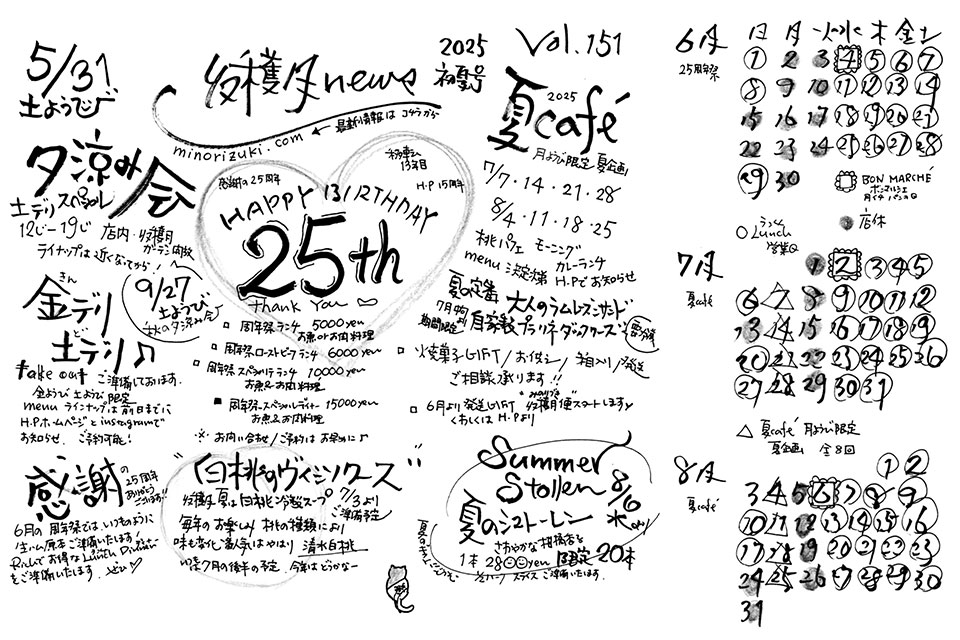 5/31
土ようび
夕涼み会
土デリ スペシャル
12じ〜19じ 店内・穫月
ガーデン開放
ライナップは近くなってから!
金デリ
きん
土デリ♪
ど
9/27
土ようび
秋の夕涼み会
take out ご準備しております。
金ようび 土ようび 限定
menu ラインナップは前日までに
H.Pホームページと instagramで
お知らせ、ご予約可能!
感謝の
25周年
ありがとう
ございます!!
6月の周年祭では、いつものように
をご準備いたします。
穫月news
2025
初夏号
Vol.151
最新情報は コチラから
minorizuki.com
感謝の25周年
13年目
H.P 15周年
HAPPY BIRTHDAY
25th
thank you
周年祭ランチ 5000yen
お魚orお肉料理
周年祭ローストビーフランチ 6000yen
周年祭スペシャルランチ 10000yen
お魚&お肉料理
周年祭スペシャルディナー 15000yen
お魚&お肉料理
※お問い合せ/ご予約はお早めに♪
"白桃のヴィシソワーズ"
7/3より
ご準備予定
毎年のお楽しみ 桃の種類により
味も変化 一番人気はやはり 清水白桃
いつも7月の後半の予定 今年はどうかな〜
夏café
2025
月ようび限定 夏企画
7/7・14・21・28
8/4・11・18・25
桃パフェ モーニング
カレーランチ
menu 決定次第 H.Pでお知らせ
夏の定番
7月中旬より
期間限定
大人のラムレーズンサンド
自家製プラリネダックワーズ
焼菓子GIFT/お供え/箱入り/発送
ご相談承ります!!
6月より発送GIFT 穫月便スタートします♪
みのりづき
くわしくは H.Pより
Summer
Stollen
8/6
水より
夏のシュトーレン
さわやかな柑橘香る
1本 2800yen 限定20本
スライス ご準備いたします。
6月
25周年祭
日 月 火 水 木 金 土
1 2 3 4 5 6 7
8 9 10 11 12 13 14
15 16 17 18 19 20 21
22 23 24 25 26 27 28
29 30
BON MARCHÉ
ボンマルシェ
月イチ パンの日
店休
ランチ
Lunch
営業日
7月
夏café
1 2 3 4 5
6 7 8 9 10 11 12
13 14 15 16 17 18 19
20 21 22 23 24 25 26
27 28 29 30 31
△ 夏café 月ようび限定
夏企画 全8回
8月
夏café
1 2
3 4 5 6 7 8 9
10 11 12 13 14 15 16
17 18 19 20 21 22 23
24 25 26 27 28 29 30
31